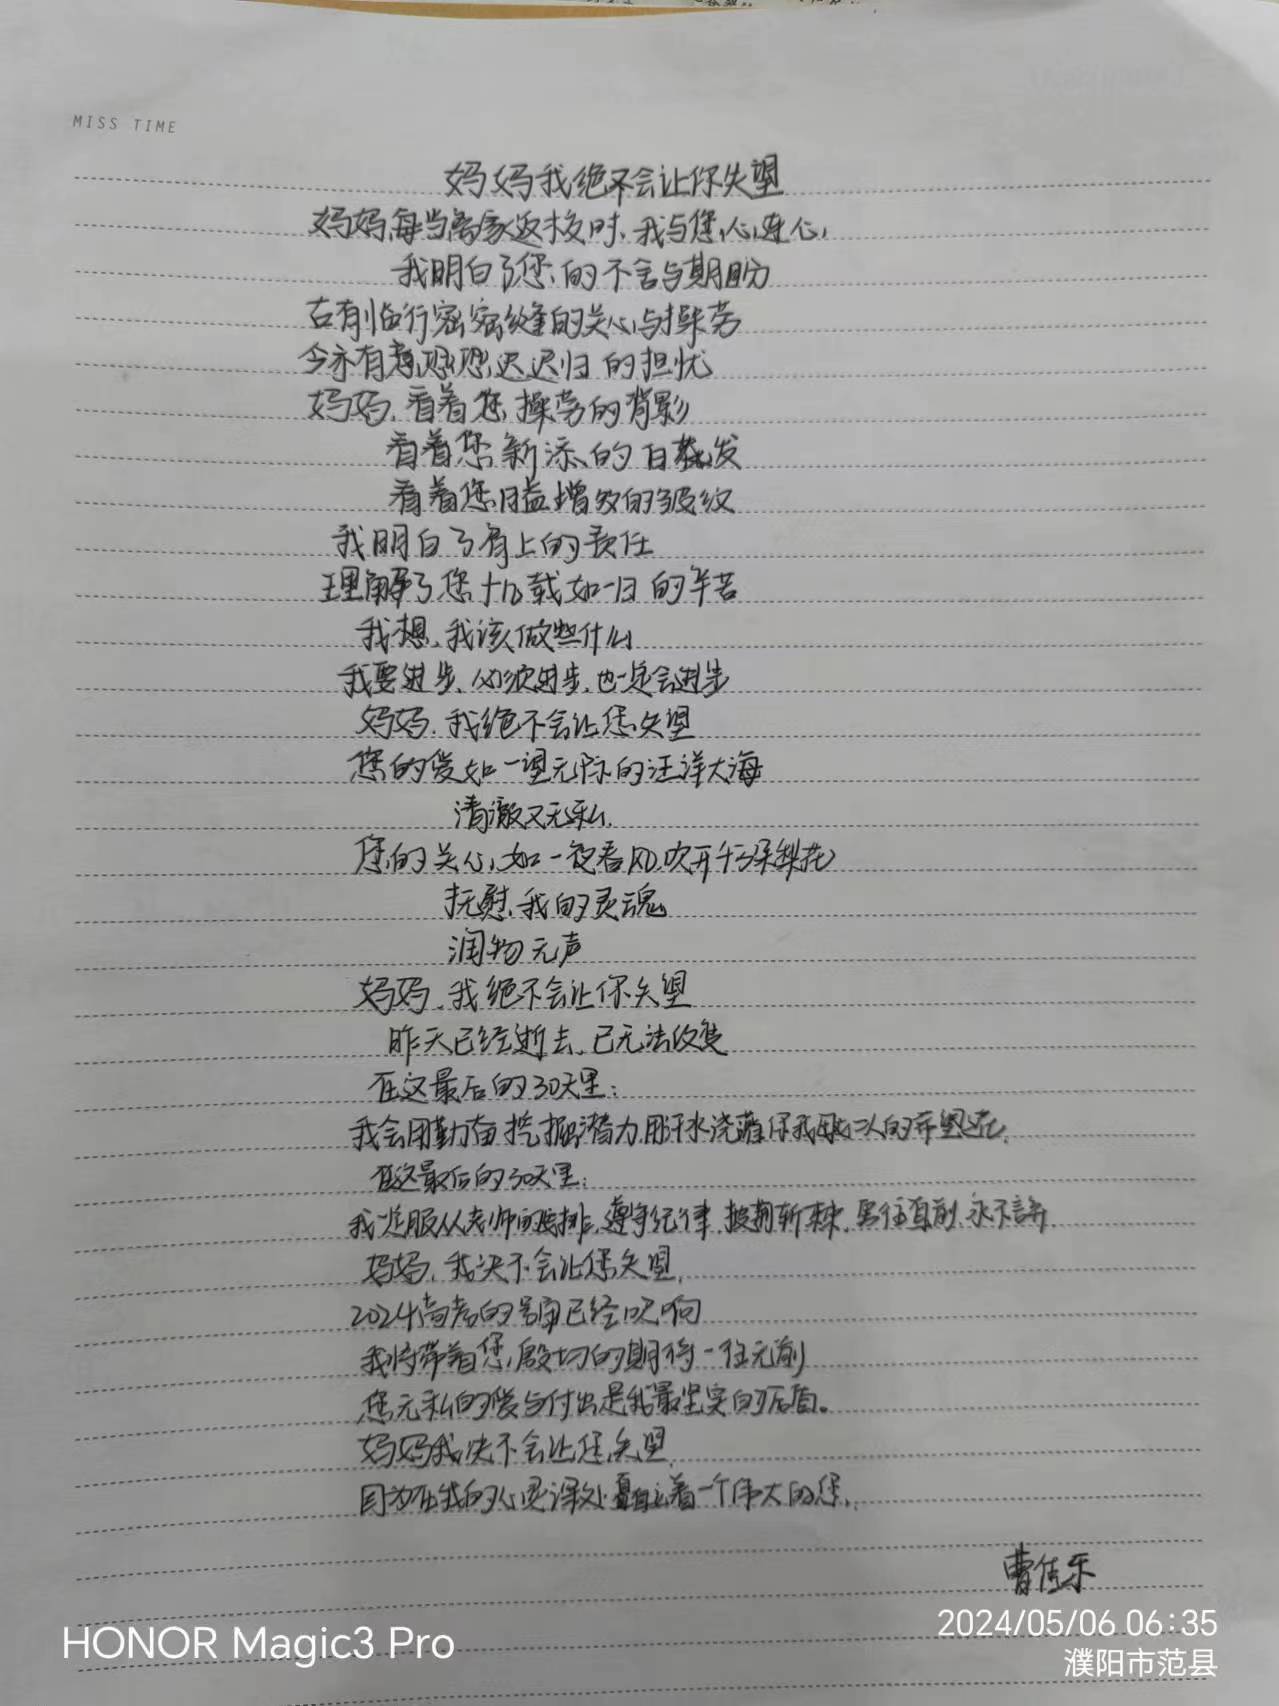 MISS TIME
妈妈我绝不会让你失望
妈妈,每当离家返校时,我与您心连心,
我明白了您的不舍与期盼
古有临行密密缝的关心与操劳
今亦有意恐迟迟归的担忧
妈妈,看着您操劳的背影
看着您新添的白发
看着您日益增多的皱纹
我明白了肩上的责任
理解了您十几载如一日的辛苦
我想,我该做些什么
我要进步,必须进步,也一定会进步
妈妈,我绝不会让您失望
您的爱如一望无际的汪洋大海
清澈又无私.
您的关心,如一夜春风,吹开千万朵梨花
抚慰我的灵魂
润物无声
妈妈,我绝不会让你失望
昨天已经逝去,已无法收复
在这最后的30天里:
我会用勤奋挖掘潜力,用汗水浇灌你我母女二人的希望之花.
在这最后的30天里:
我定服从老师的安排,遵守纪律,披荆斩棘,勇往直前,永不言弃.
妈妈,我决不会让您失望.
2024高考的号角已经吹响
我将带着您殷切的期待一往无前
您无私的爱与付出是我最坚实的后盾。
妈妈我决不会让您失望.
因为在我的心灵深处矗立着一个伟大的您.
曹佳乐
HONOR Magic3 Pro
2024/05/06 06:35
濮阳市范县